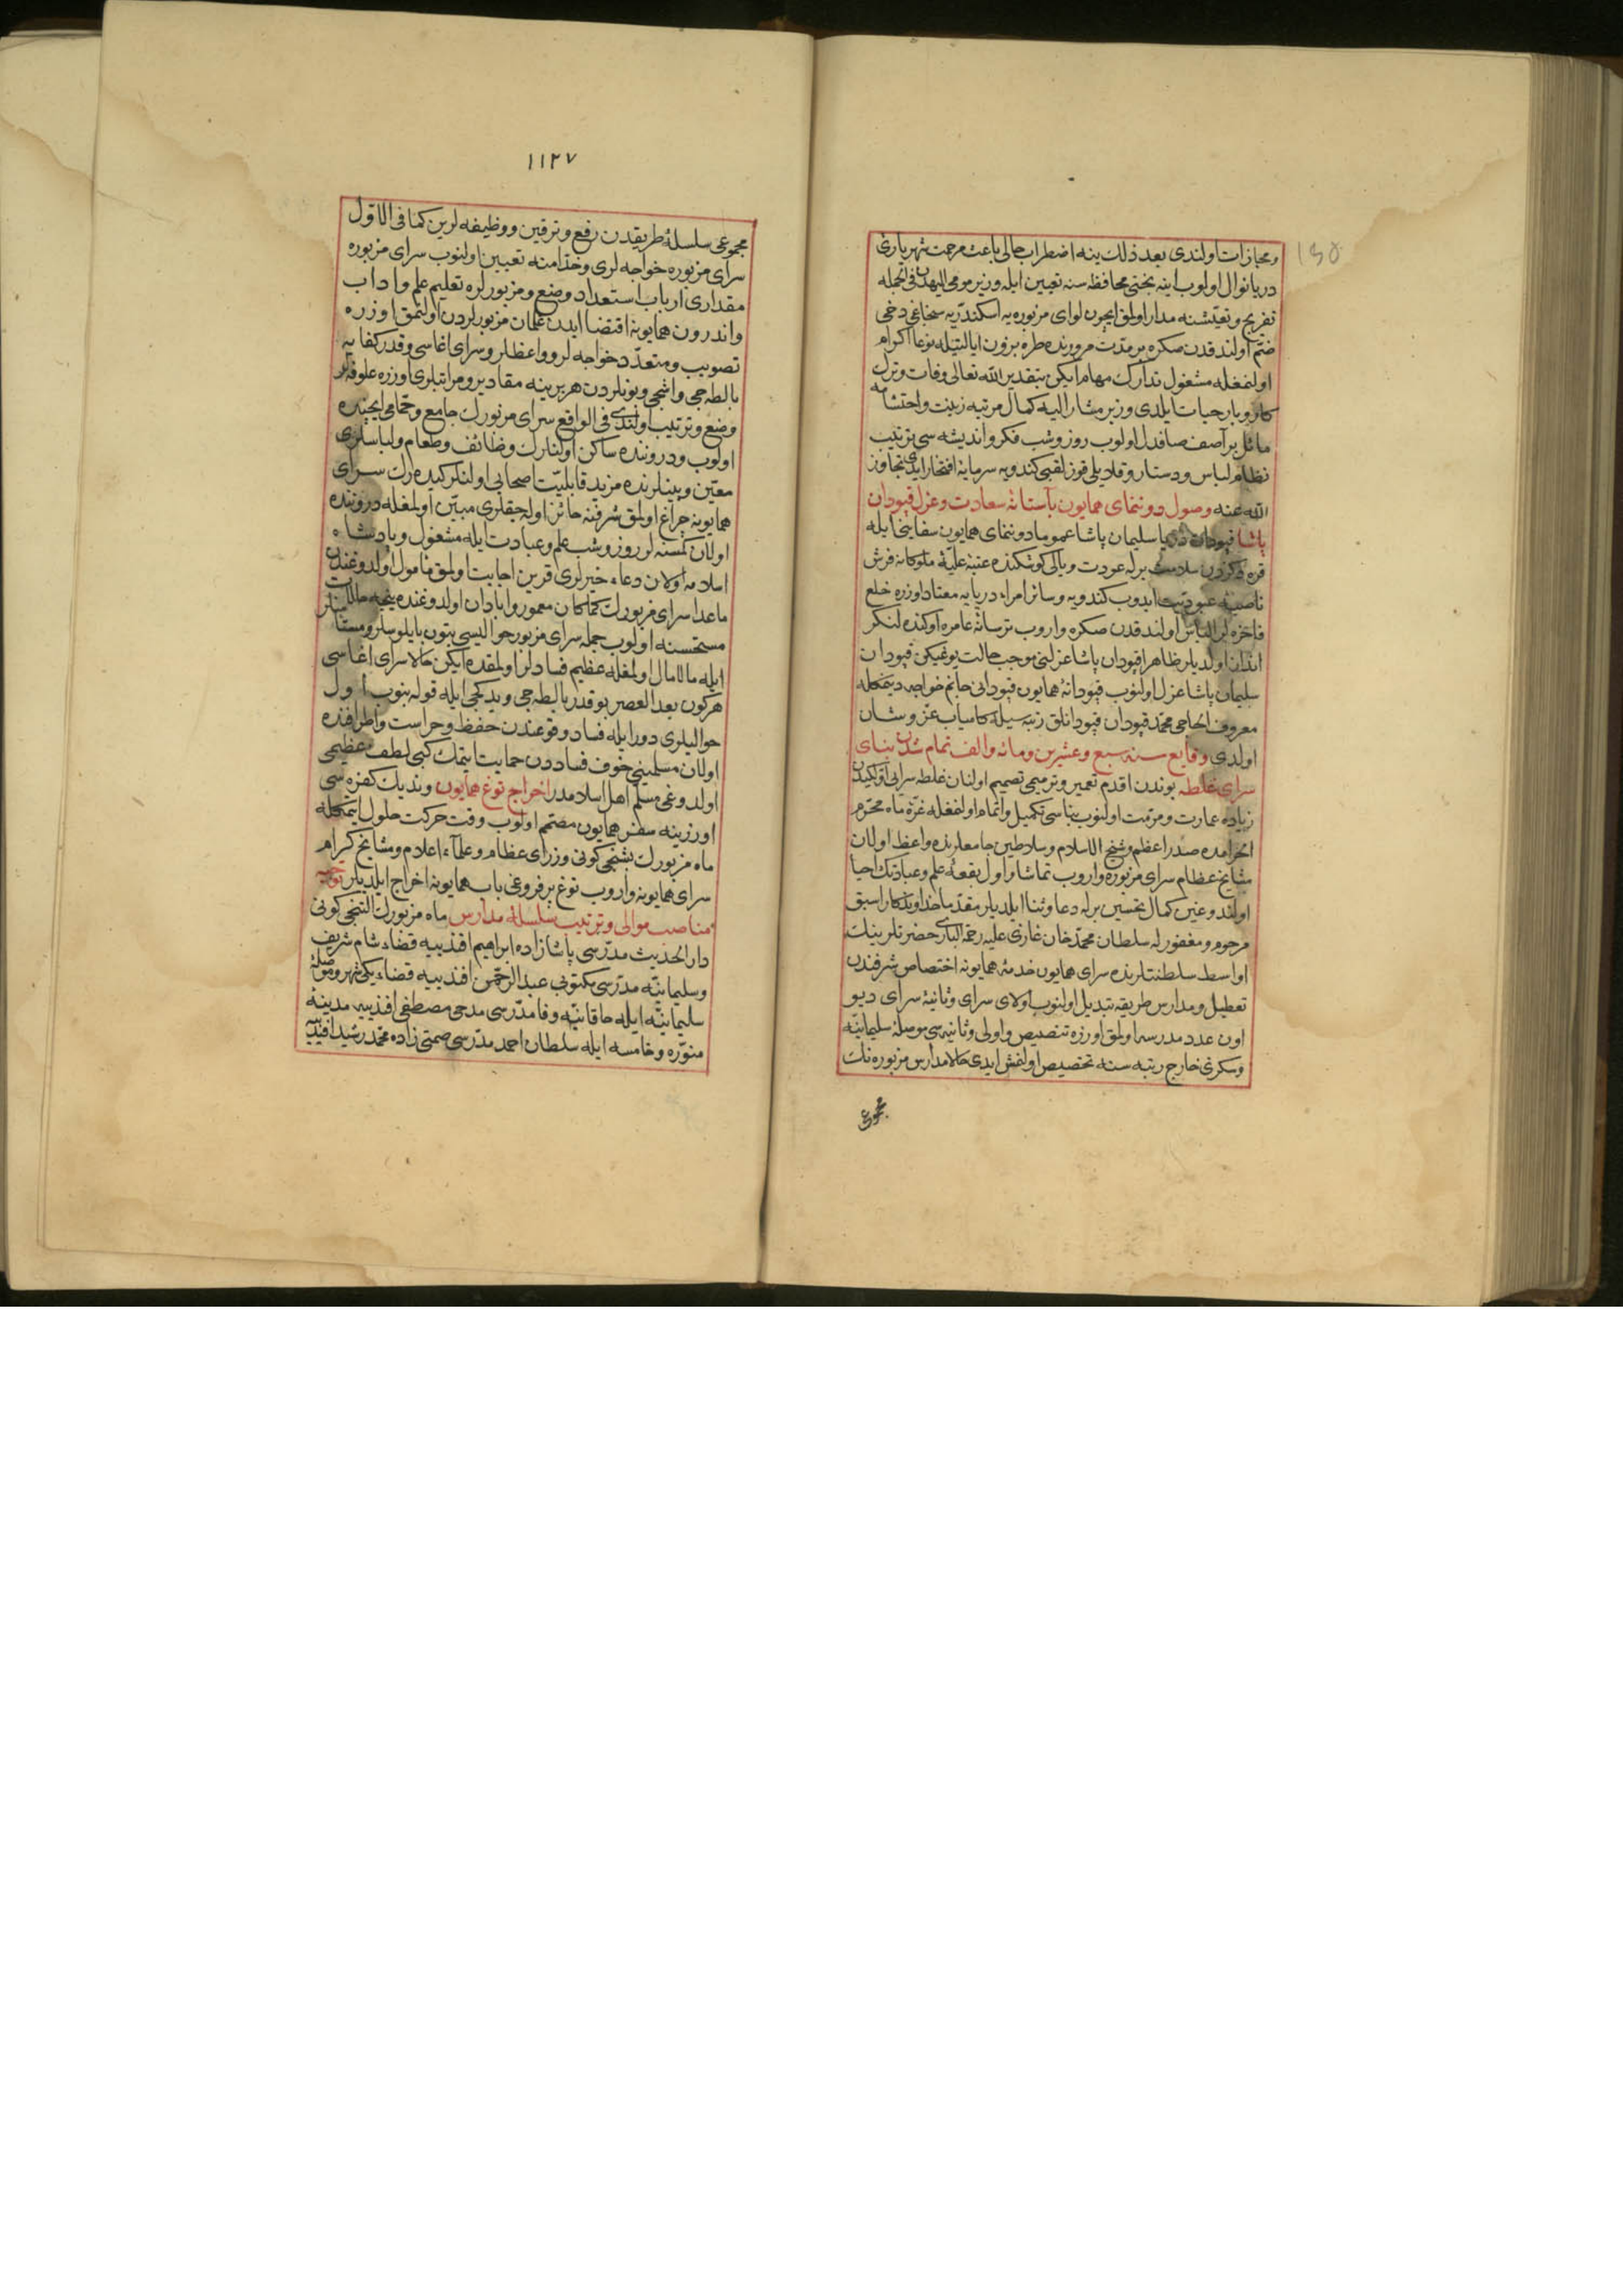 ١٣٥
ومجازات اولندی بعد ذلك ینه اضطراب حالی باعث مرحمت شهریاری
دریا نوال اولوب اینه بختی محافظه سنه تعیین ایله وزیر مومی الیهك فی الجمله
تفریح وتعیشنه مدار اولمق ایچون لوای مزبوره یه اسكندریه سنجاغی دخی
ضم اولندقدن صكره بر مدت مرورنده طره بزون ایالتیله نوعا اكرام
اولنمغله مشغول تدارك مهام ایكن بتقدیر الله تعالی وفات وترك
كار وبار حیات ایلدی وزیر مشار الیه كمال مرتبه زینت واحتشامه
مائل بر آصف صافدل اولوب روز وشب فكر واندیشه سی ترتیب
نظام لباس ودستار وقلادیلی قوز لقبی كندویه سرمایهٔ افتخار ایدی تجاوز
الله عنه وصول دوننمای همایون بآستانهٔ سعادت وعزل قپودان
پاشا قپودان دریا سلیمان پاشا عموما دوننمای همایون سفاینی ایله
قره دكزدن سلامت برله عودت ویالی كوشكنده عتبهٔ علیهٔ ملوكانه فرش
ناصیهٔ عبودیت ایدوب كندویه وسائر امراء دریایه معتاد اوزره خلع
فاخره لر الباس اولندقدن صكره واروب ترسانهٔ عامره اوكنده لنكر
انداز اولدیلر ظاهرا قپودان پاشا عزلنی موجب حالت یوغیكن قپودان
سلیمان پاشا عزل اولنوب قپودانهٔ همایون قپودانی جانم خواجه دیمكله
معروف الحاجی محمد قپودان قپودانلق رتبه سیله كامیاب عز وشان
اولدی وقایع سنه سبع وعشرین ومائه والف تمام شدن بنای
سرای غلطه بوندن اقدم تعمیر وترمیمی تصمیم اولنان غلطه سرایی اولكیدن
زیاده عمارت ومرمت اولنوب بناسی تكمیل واتمام اولنمغله غرهٔ ماه محرم
الحرامده صدر اعظم وشیخ الاسلام وسلاطین جامعلرنده واعظ اولان
مشایخ عظام سرای مزبوره واروب تماشا واول بقعهٔ علم وعبادتك احیا
اولندوغین كمال تحسین برله دعا وثنا ایلدیلر مقدما خداوندكار اسبق
مرحوم ومغفور له سلطان محمد خان غازی علیه رحمة الباری حضرتلرینك
اواسط سلطنتلرنده سرای همایون خدمهٔ همایونه اختصاص شرفندن
تعطیل ومدارس طریقه تبدیل اولنوب اولای سرای وثانیهٔ سرای دیو
اون عدد مدرسه اولمق اوزره تنصیص واولی وثانیه سی موصلهٔ سلیمانیه
وسكزی خارج رتبه سنه تخصیص اولنمش ایدی حالا مدارس مزبوره نك
مجموعی
١١٢٧
مجموعی سلسلهٔ طریقدن رفع وترقین ووظیفه لرین كما فی الاول
سرای مزبوره خواجه لری وخدامنه تعیین اولنوب سرای مزبوره
مقداری ارباب استعداد وضع ومزبورلره تعلیم علم واداب
واندرون همایونه اقتضا ایدن غلمان مزبورلردن اولنمق اوزره
تصویب ومتعدد خواجه لر وواعظلر وسرای اغاسی وقدر كفایه
بالطه جی واشجی وبونلردن هر برینه مقادیر ومراتبلری اوزره علوفه لر
وضع وترتیب اولندی فی الواقع سرای مزبورك جامع وحمامی ایچنده
اولوب ودروننده ساكن اولنلرك وظائف وطعام ولباسلری
معین وبینلرنده مزید قابلیت اصحابی اولنلر كیده رك سرای
همایونه چراغ اولمق شرفنه حائز اوله جقلری مبین اولمغله دروننده
اولان كمسنه لر روز وشب علم وعبادت ایله مشغول وپادشاه
اسلامه اولان دعاء خیرلری قرین اجابت اولمق مأمول اولدوغندن
ماعدا سرای مزبورك كماكان معمور وابادان اولدوغنده نیجه حالات
مستحسنه اولوب جمله سرای مزبور حوالیسی بتون بایلوسلر ومستأمنلر
ایله مالامال اولمغله عظیم فسادلر اولمقده ایكن حالا سرای اغاسی
هركون بعد العصر بو قدر بالطه جی ویدكجی ایله قوله بنوب اول
حوالیلری دور ایله فساد وقوعندن حفظ وحراست واطرافنده
اولان مسلمینی خوف فساددن حمایت ایتمك كبی لطف عظیمی
اولدوغی مسلم اهل اسلامدر اخراج توغ همایون وندیك كفره سی
اورزینه سفر همایون مصمم اولوب وقت حركت حلول ایتمكله
ماه مزبورك بشنجی كونی وزرای عظام وعلمآء اعلام ومشایخ كرام
سرای همایونه واروب توغ پر فروغی باب همایونه اخراج ایلدیلر توجیه
مناصب موالی وترتیب سلسلهٔ مدارس ماه مزبورك التنجی كونی
دار الحدیث مدرسی پاشا زاده ابراهیم افندییه قضاء شام شریف
وسلیمانیه مدرسی مكتوبی عبد الرحمن افندییه قضاء یكی شهر وموصلهٔ
سلیمانیه ایله خاقانیه وفا مدرسی مدحی مصطفی افندییه مدینهٔ
منوره وخامسه ایله سلطان احمد مدرسی صمتی زاده محمد رشید افندییه